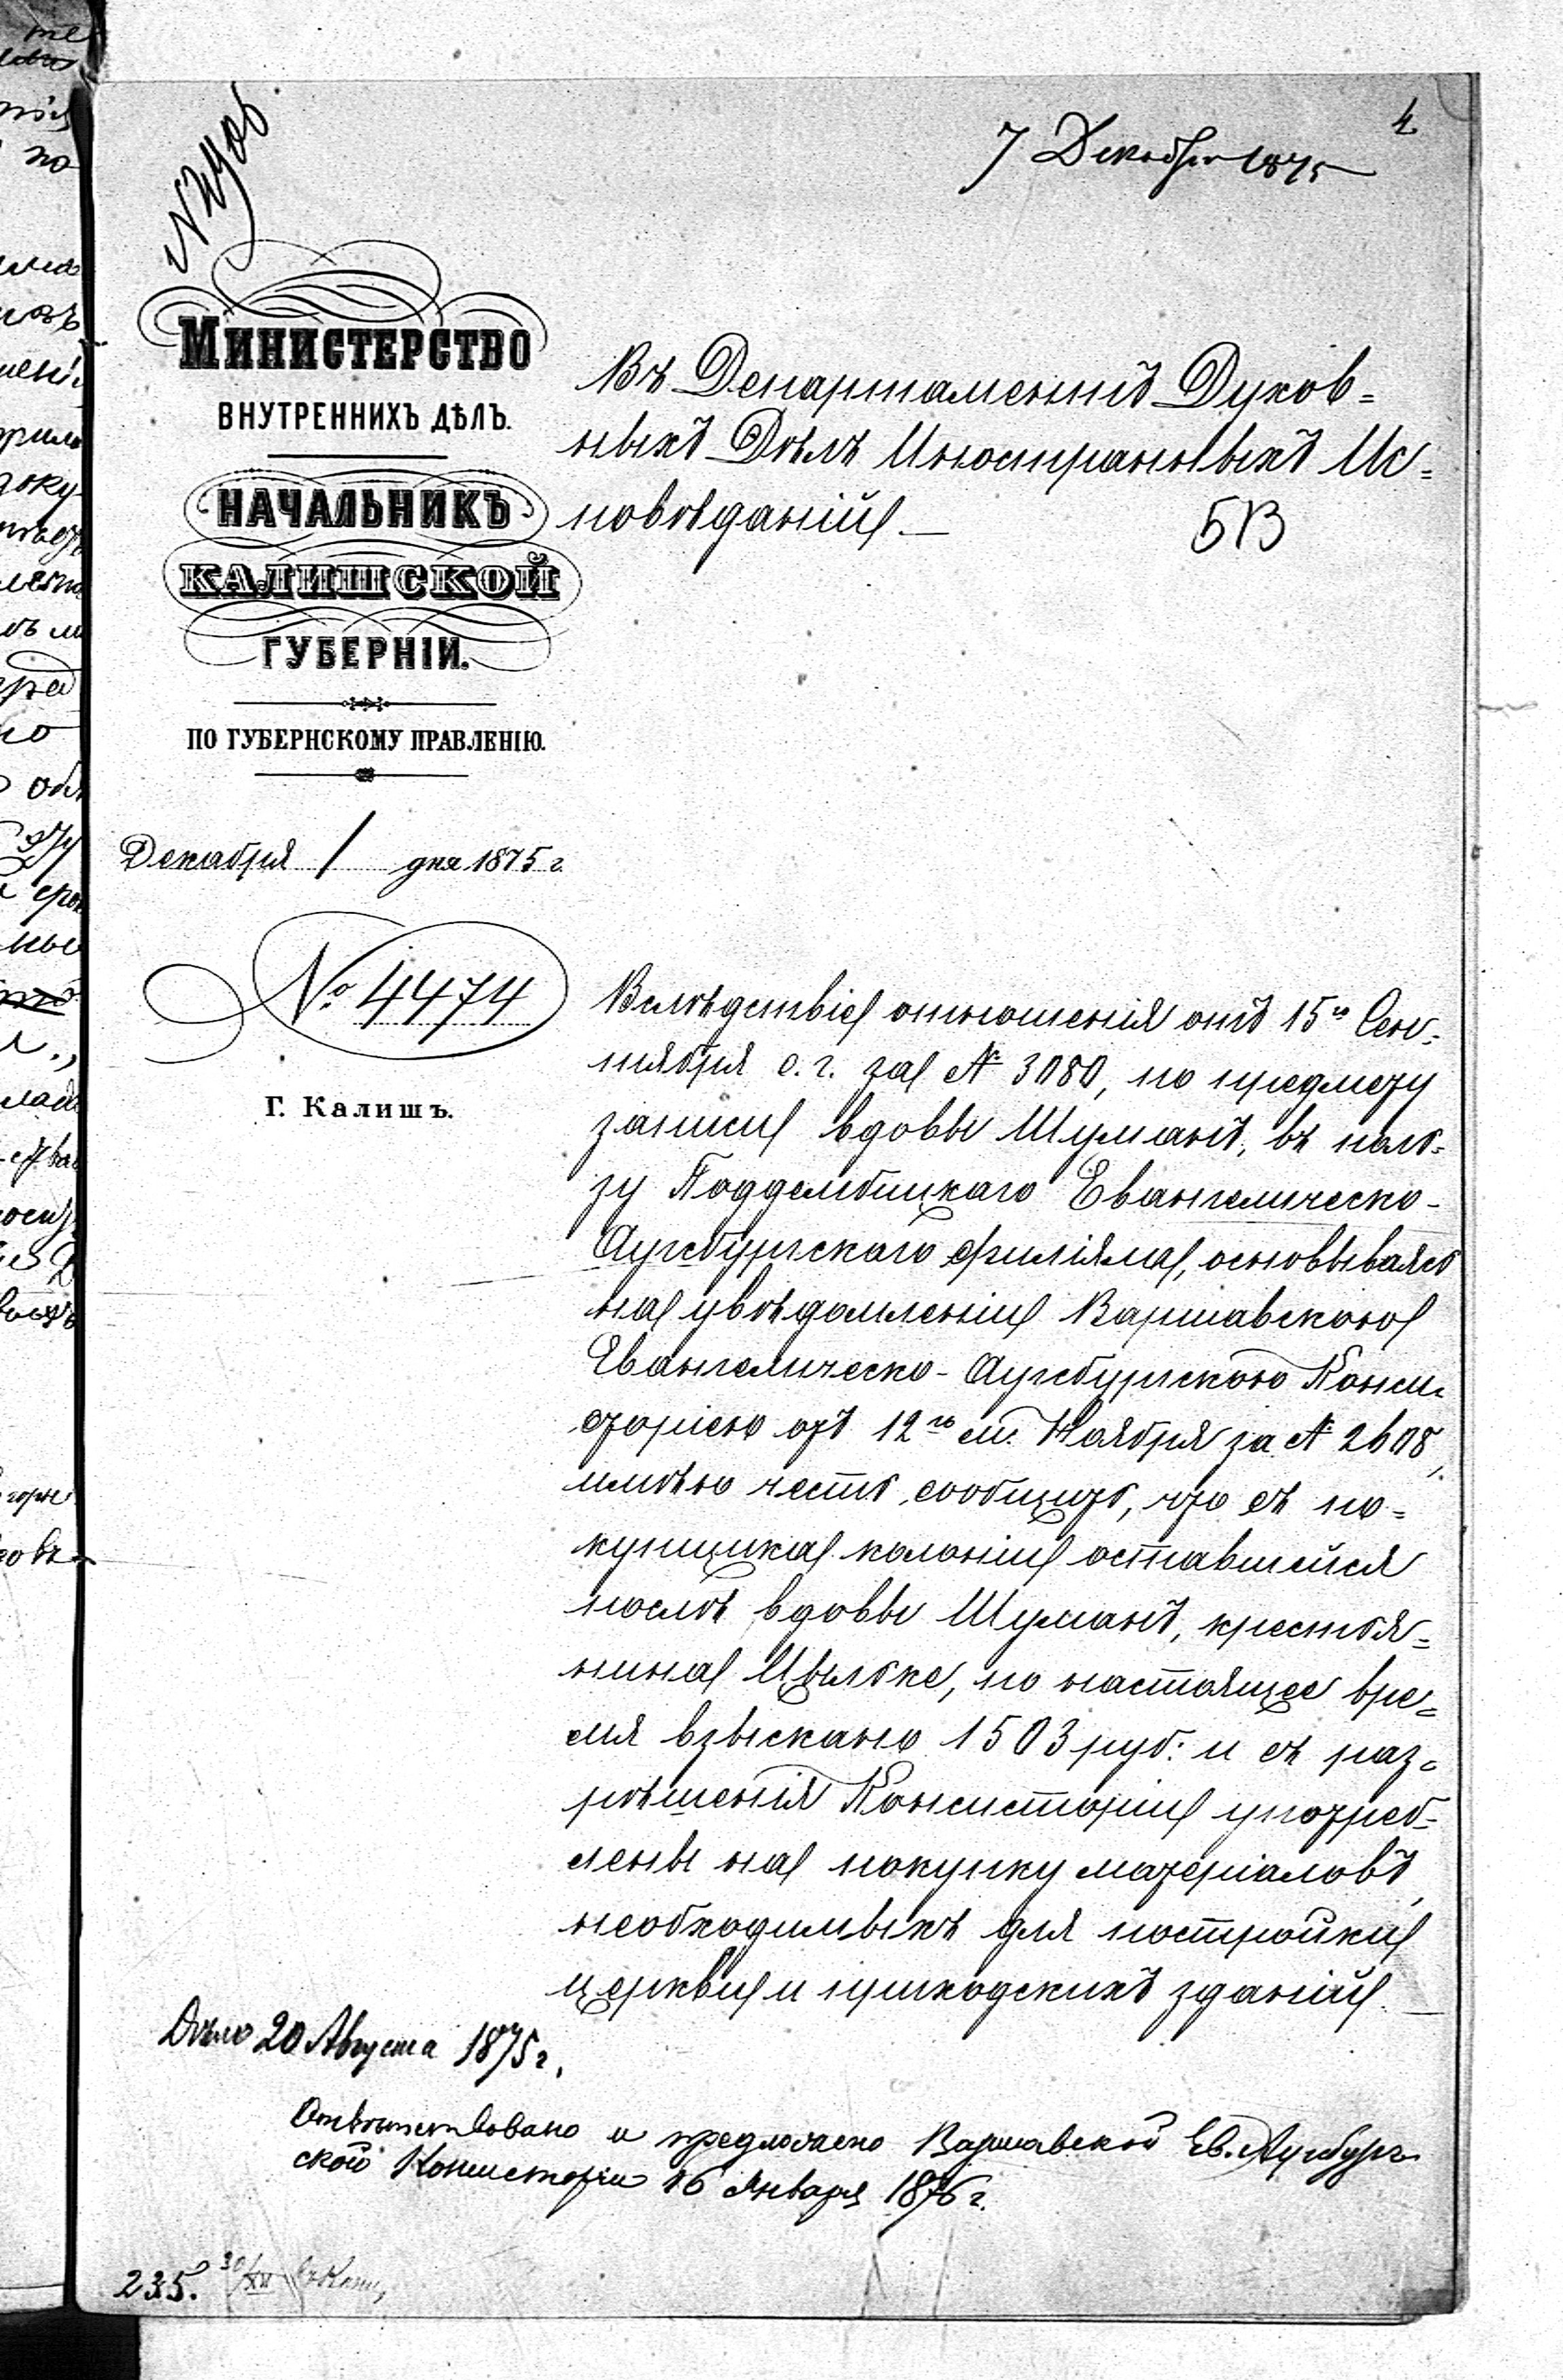 4
7 Декабря 1875
МИНИСТЕРСТВО
ВНУТРЕННИХЪ ДѢЛЪ.
НАЧАЛЬНИКЪ
КАЛИШСКОЙ
ГУБЕРНІИ.
ПО ГУБЕРНСКОМУ ПРАВЛЕНІЮ.
Декабря 1 дня 1875 г.
№ 4474
Г. Калишъ.
Въ Департаментъ Духов=
ныхъ Дѣлъ Иностранныхъ Ис=
повѣданій.—
Вслѣдствіе отношенія отъ 15го Сен-
тября с. г. за № 3080, по предмету
записи вдовы Шуманъ, въ поль=
зу Поддембицкаго Евангелическо-
Аугсбургскаго филіяла, основываясь
на увѣдомленіи Варшавскою
Евангелическо-Аугсбургскою Конси-
сторіею отъ 12го см. Ноября за № 2608,
имѣю честь сообщить, что съ по=
купщика колоніи оставшейся
послѣ вдовы Шуманъ, крестья=
нина Цвильке, по настоящее вре=
мя взыскано 1503 руб: и съ раз=
рѣшенія Консисторіи употреб-
лены на покупку матеріаловъ,
необходимыхъ для постройки
церкви и приходскихъ зданій.—
Дѣло 20 Августа 1875 г.
Отвѣтствовано и предложено Варшавской Ев. Аугсбург
ской Консисторіи 16 Января 1876 г.
235.